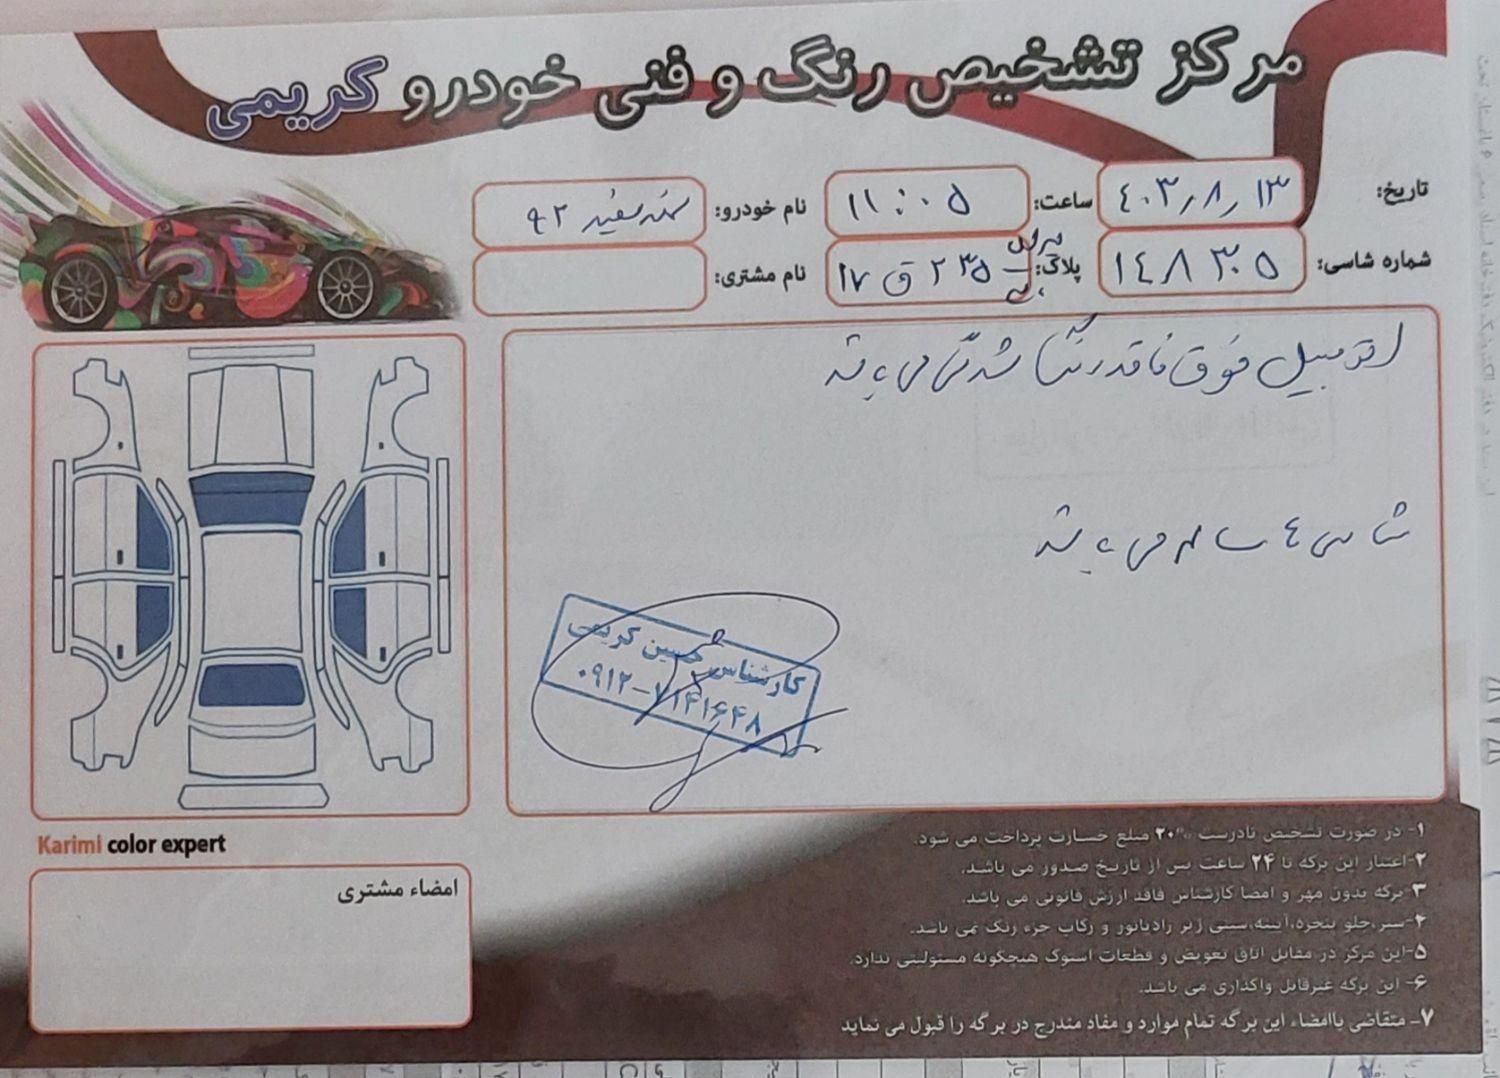 مرکز تشخیص رنگ و فنی خودرو کریمی
تاریخ: ۴۰۳/۸/۱۳
ساعت: ۱۱:۰۵
نام خودرو: سمند سفید ۹۲
شماره شاسی: ۱۴۸۳۰۵
پلاک: ۲۳۵ ق ۱۷
نام مشتری:
اتومبیل فوق فاقد رنگ شدگی می باشد
شاسی ها سالم می باشد
کارشناس حسین کریمی
۰۹۱۲-۷۱۴۱۶۴۸
Karimi color expert
امضاء مشتری
۱- در صورت تشخیص نادرست ۲۰% مبلغ خسارت پرداخت می شود.
۲-اعتبار این برگه تا ۲۴ ساعت پس از تاریخ صدور می باشد.
۳-برگه بدون مهر و امضا کارشناس فاقد ارزش قانونی می باشد.
۴-سپر،جلو پنجره،آیینه،سینی زیر رادیاتور و رکاب جزء رنگ نمی باشد.
۵-این مرکز در مقابل اتاق تعویض و قطعات استوک هیچگونه مسئولیتی ندارد.
۶- این برگه غیرقابل واگذاری می باشد.
۷- متقاضی باامضاء این برگه تمام موارد و مفاد مندرج در برگه را قبول می نماید